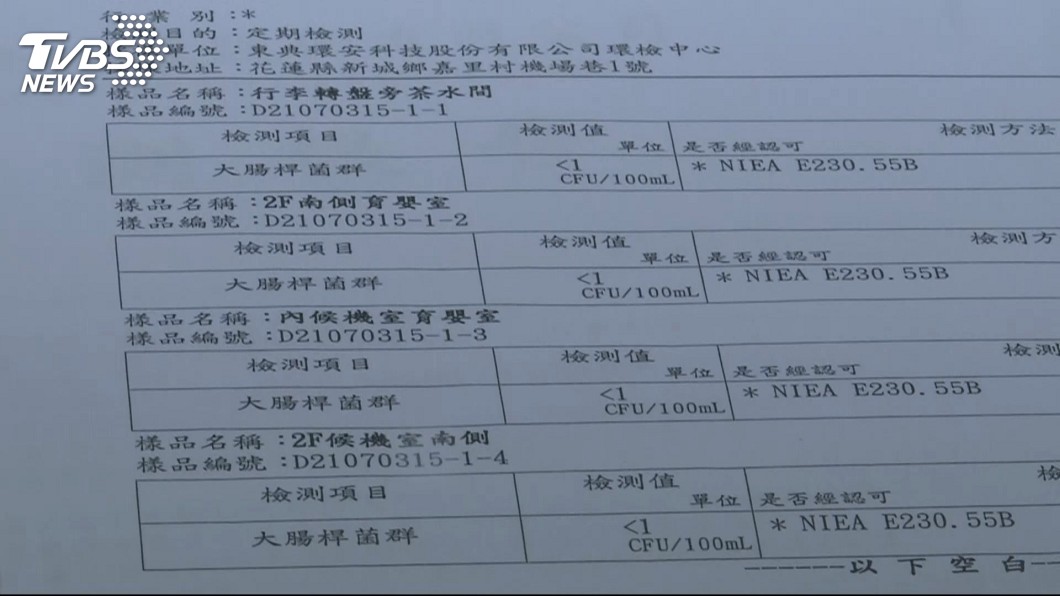 行業別:*
檢測目的:定期檢測
單位:東典環安科技股份有限公司環檢中心
地址:花蓮縣新城鄉嘉里村機場巷1號
TVBS NEWS
樣品名稱:行李轉盤旁茶水間
樣品編號:D21070315-1-1
檢測項目 檢測值 單位 檢測方法 是否經認可
大腸桿菌群 <1 CFU/100mL * NIEA E230.55B
樣品名稱:2F南側育嬰室
樣品編號:D21070315-1-2
檢測項目 檢測值 單位 檢測方 是否經認可
大腸桿菌群 <1 CFU/100mL * NIEA E230.55B
樣品名稱:內候機室育嬰室
樣品編號:D21070315-1-3
檢測項目 檢測值 單位 檢測 是否經認可
大腸桿菌群 <1 CFU/100mL * NIEA E230.55B
樣品名稱:2F候機室南側
樣品編號:D21070315-1-4
檢測項目 檢測值 單位 檢 是否經認可
大腸桿菌群 <1 CFU/100mL * NIEA E230.55B
------以下空白--